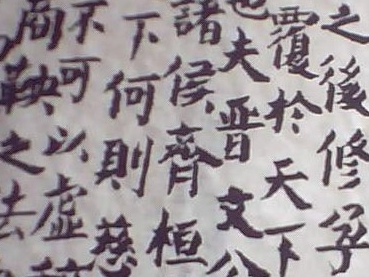 之後修孕
覆於天下
也夫晉文公
諸侯齊桓
下何則慈
不可以虛
商鞅之法